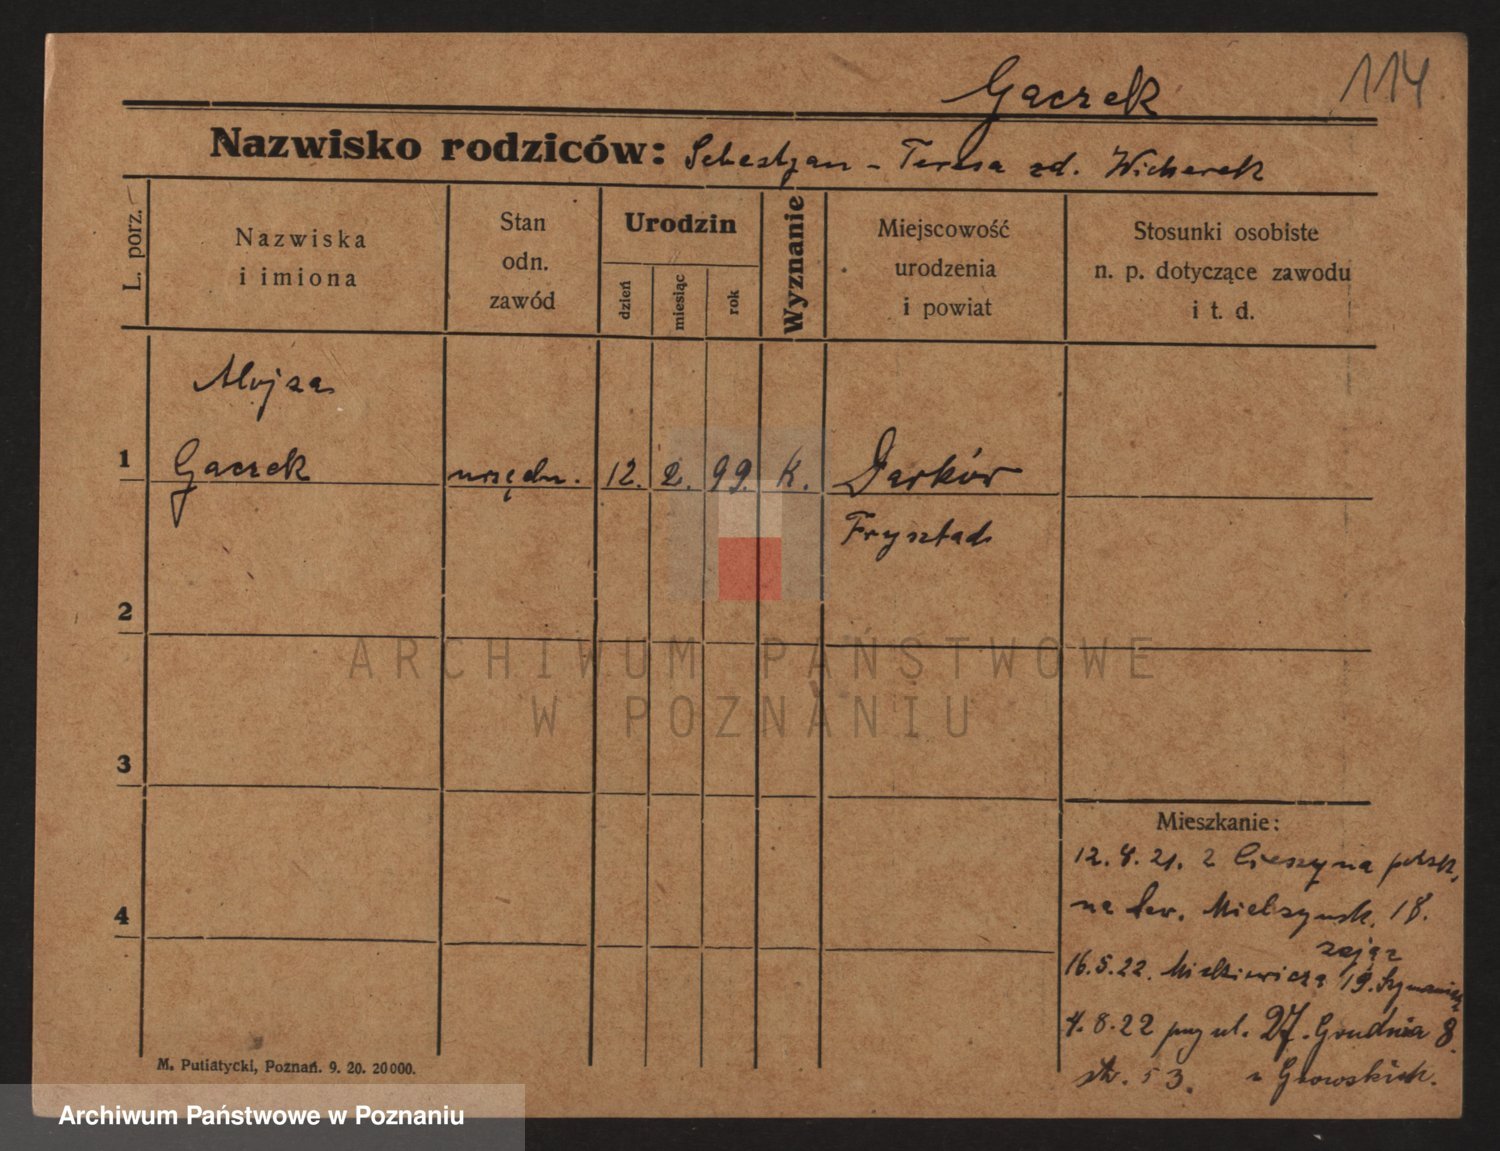 114
Gaczek
Nazwisko rodziców: Sebastjan - Teresa zd. Wicherek
L. porz.
Nazwiska i imiona
Stan odn. zawód
Urodzin
dzień
miesiąc
rok
Wyznanie
Miejscowość urodzenia i powiat
Stosunki osobiste n. p. dotyczące zawodu i t. d.
Alojza
1 Gaczek urzędn. 12. 2. 99. k. Darków
Frysztad
2
ARCHIWUM PAŃSTWOWE
W POZNANIU
3
4
Mieszkanie:
12. 4. 21. z Cieszyna polsk.
na Sew. Mielżynsk. 18.
zając
16.5.22. Mickiewicza 19.
4.8.22 przy ul. 27. Grudnia 8.
str. 53. u
M. Putiatycki, Poznań. 9. 20. 20000.
Archiwum Państwowe w Poznaniu